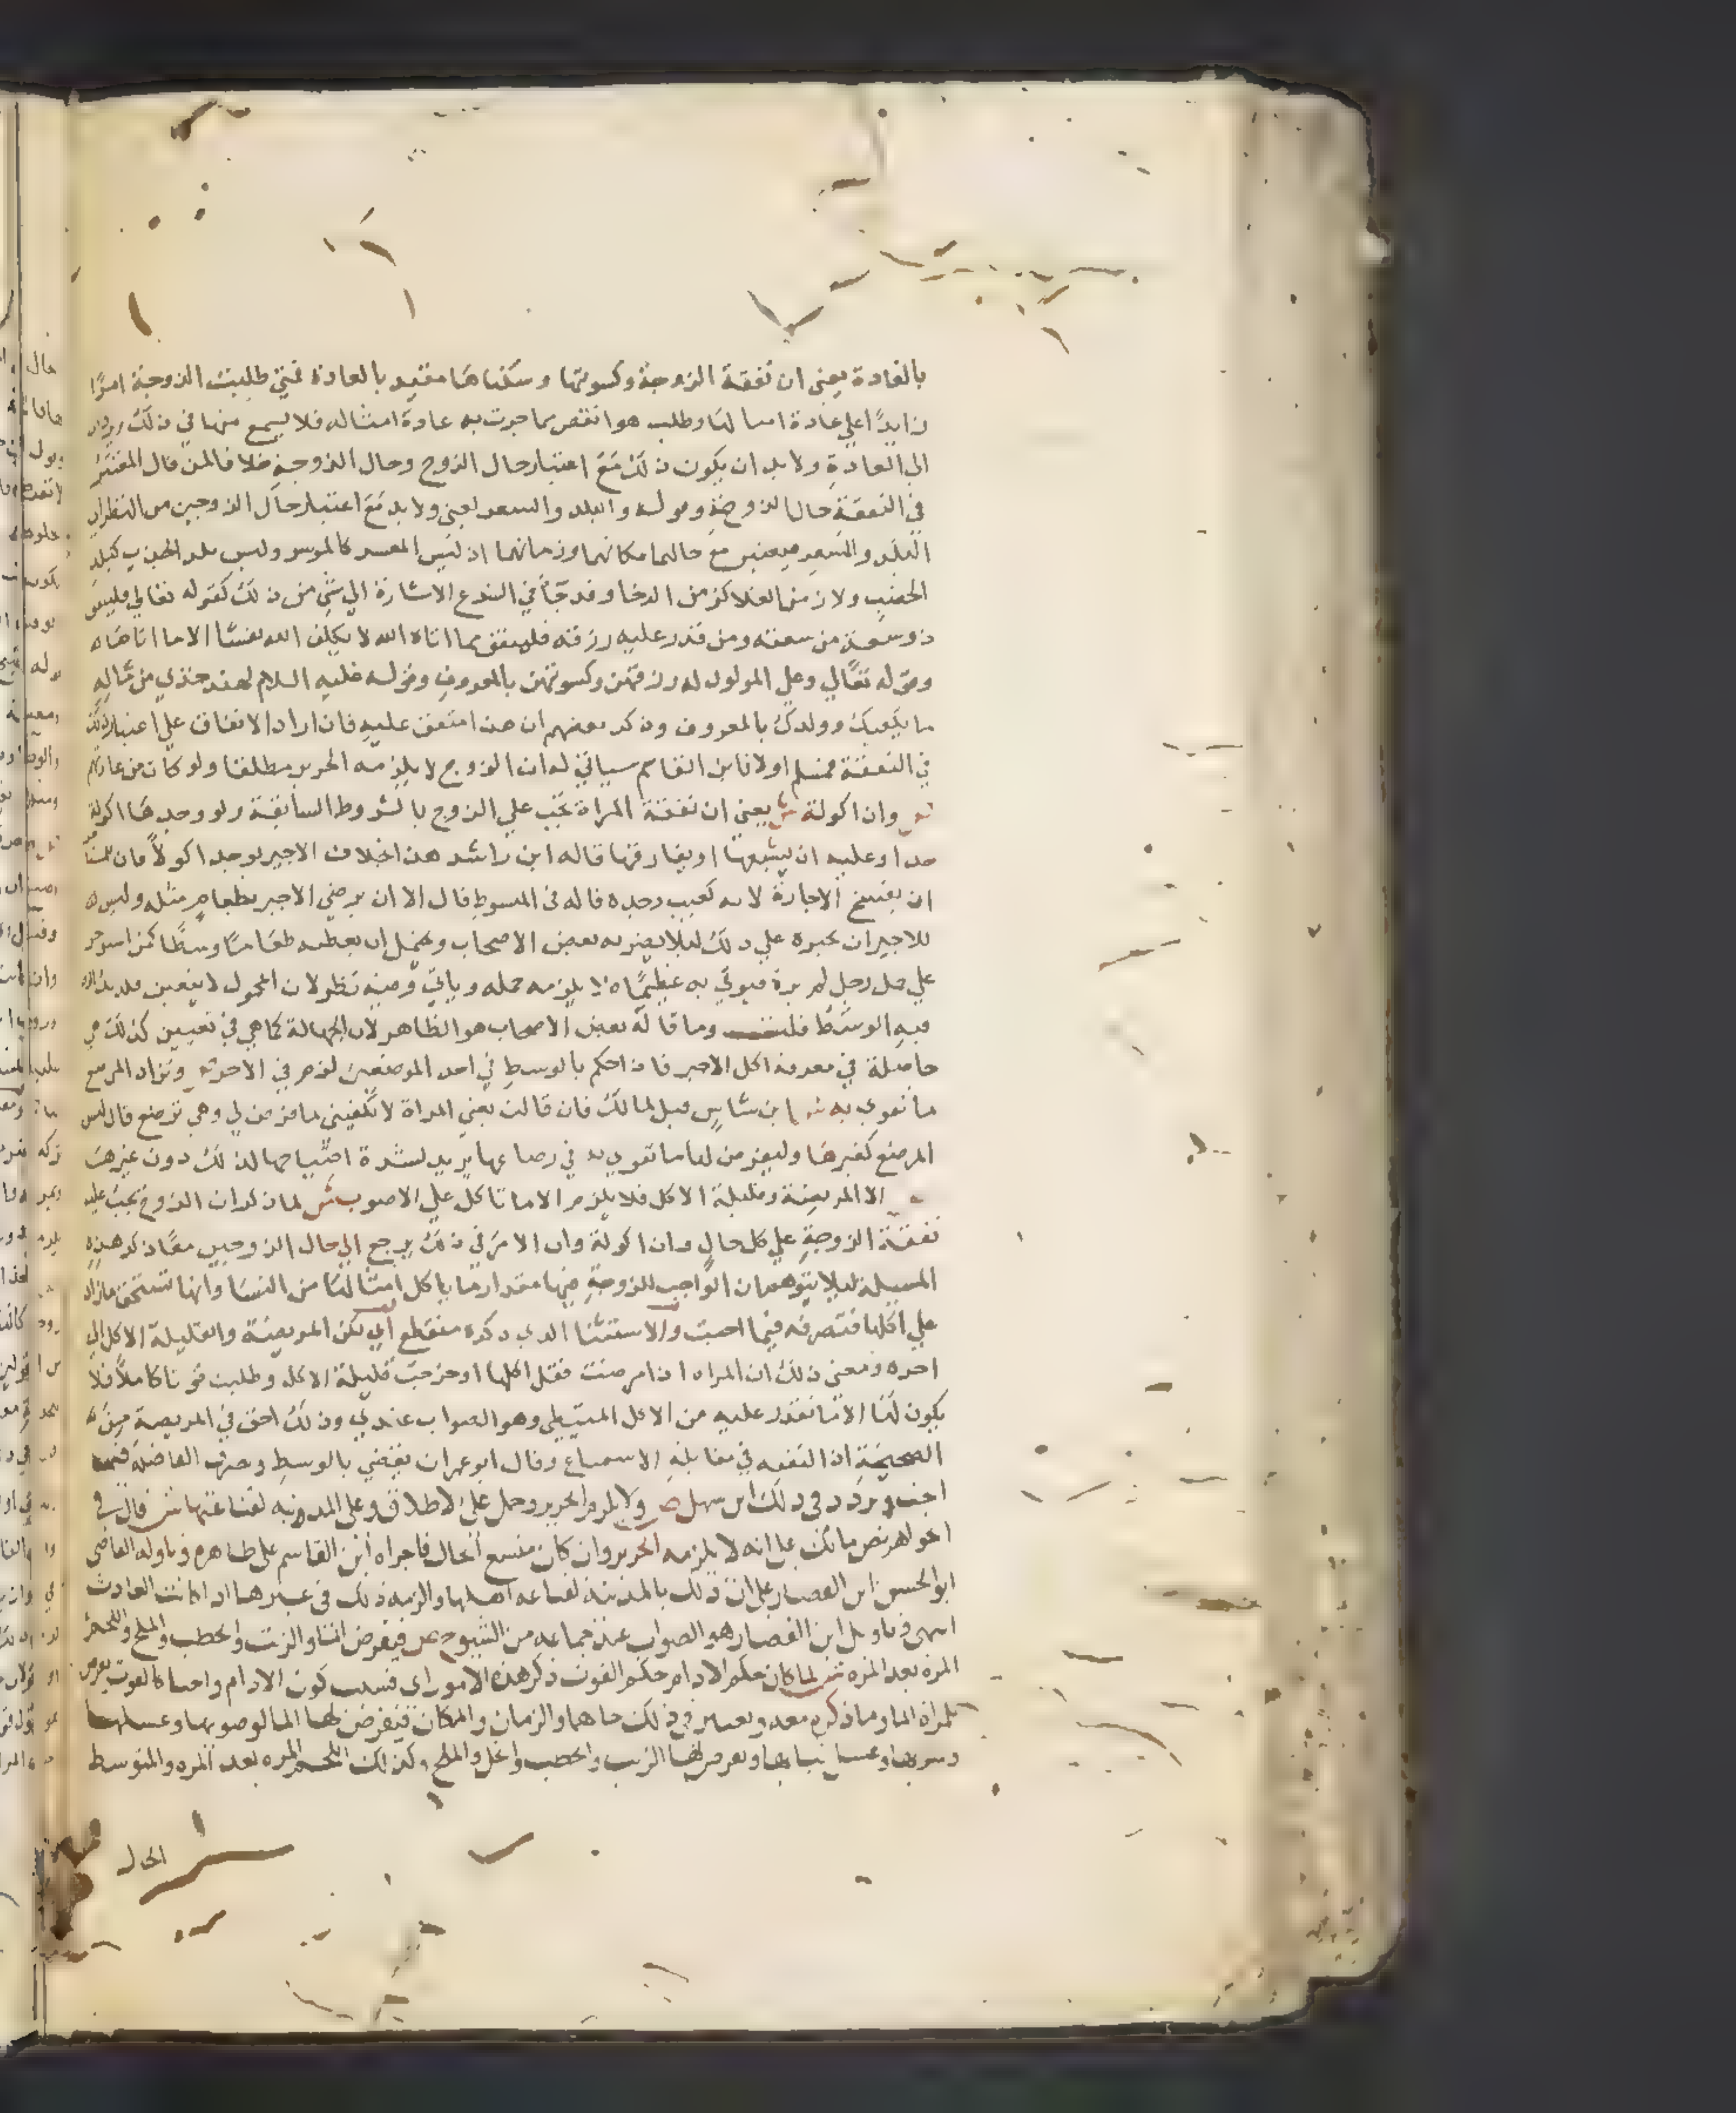 بالعادة يعني ان نفقة الزوجة وكسوتها وسكناها مقيد بالعادة فمتى طلبت الزوجة امرا
زايدا على عادة امثالها وطلب هو انقص مما جرت به عادة امثاله فلا يسمع منها في ذلك
الى العادة ولا بد ان يكون ذلك مع اعتبار حال الزوج وحال الزوجة خلافا لمن قال المعتبر
في النفقة حال الزوجة وقوله والبلد والسعر يعني ولا بد مع اعتبار حال الزوجين من النظر الى
البلد والسعر فيعتبر مع حالهما مكانهما وزمانهما اذ ليس المعسر كالموسر وليس بلد الجدب كبلد
الخصب ولا زمن الغلا كزمن الرخا وقد جاء في الشرع الاشارة الى شي من ذلك كقوله تعالى لينفق
ذو سعة من سعته ومن قدر عليه رزقه فلينفق مما اتاه الله لا يكلف الله نفسا الا ما اتاها
وقوله تعالى وعلى المولود له رزقهن وكسوتهن بالمعروف وقوله عليه السلام لهند خذي من ماله
ما يكفيك وولدك بالمعروف وذكر بعضهم ان هذا متفق عليه فان اراد الاتفاق على اعتبار ذلك
في النفقة فمسلم اولا فابن القاسم سياتي له ان الزوج لا يلزمه الحرير مطلقا ولو كان من عادتهم
وان اكولة ش يعني ان نفقة المراة تجب على الزوج بالشروط السابقة ولو وجدها اكولة
جدا وعليه ان يشبعها او يفارقها قاله ابن راشد هذا بخلاف الاجير يوجد اكولا فان
ان يفسخ الاجارة لانه كعيب وجده قاله في المبسوط قال الا ان يرضى الاجير بطعام مثله وليس
للاجير ان يجبره على ذلك ليلا يضر به بعض الاصحاب ويحتمل ان يعطيه طعاما وسطا كمن استوجر
على حمل رجل لم يره فيوتى به عظيما لا يلزمه حمله وياتي وفيه نظر لان المحمول لا يتعين فلذلك
فيه الوسط فلت وما قاله بعض الاصحاب هو الظاهر لان الجهالة كما هي في تعيين كذلك هي
حاصلة في معرفة اكل الاجير فاذا حكم بالوسط في احد الموضعين لزم في الاخر وتزاد المرضع
ما تقوى به ش ابن شاس قيل لمالك فان قالت يعني المراة لا تكفيني ما فرض لي وهي ترضع قال ليس
المرضع كغيرها وليفرض لها ما تقوى به في رضاعها يريد لشدة احتياجها لذلك دون غيرها
الا المريضة وقليلة الاكل فلا يلزم الا ما تاكل على الاصوب ش لما ذكر ان الزوج يجب عليه
نفقة الزوجة على كل حال وان اكولة وان الامر في ذلك يرجع الى حال الزوجين معا ذكر هذه
المسيلة ليلا يتوهم ان الواجب للزوجة فيها مقدار ما ياكل امثالها من النسا وانها تستحق ما زاد
على اكلها فتصرفه فيما احبت والاستثنا الذي ذكره منقطع اي لكن المريضة والقليلة الاكل الى
اخره ومعنى ذلك ان المراه اذا مرضت فقل اكلها او خرجت قليلة الاكل وطلبت قوتا كاملا فلا
يكون لها الا ما تقدر عليه من الاكل المتيطي وهو الصواب عندي وذلك احق في المريضة من
الصحيحة ان النفقه في مقابلة الاستمتاع وقال ابو عمران يقضي بالوسط وصرف الفاضلة فيما
احبت وتردد في ذلك ابن سهل ص ولا يلزم الحرير وحمل على الاطلاق وعلى المدونيه لقناعتها ش قال في
الجواهر نص مالك على انه لا يلزمه الحرير وان كان متسع الحال فاجراه ابن القاسم على ظاهره وتاوله القاضي
ابو الحسن ابن القصار على ان ذلك بالمدينة لقناعه اهلها والزمه ذلك في غيرها اذا كانت العادة
انتهى وتاويل ابن القصار هو الصواب عند جماعه من الشيوخ ص فيفرض الما والزيت والحطب والملح واللحم
المرة بعد المره ش لما كان حكم الادام حكم القوت ذكر هذه الامور اي فسبب كون الادام واجبا كالقوت يفرض
للمراة الما وما ذكره معه ويعتبر في ذلك حالهما والزمان والمكان فيفرض لها الما لوضويها وغسلها
وشربها وغسل ثيابها ويفرض لها الزيت والحطب والخل والملح وكذلك اللحم المره بعد المره والمتوسط
الحال